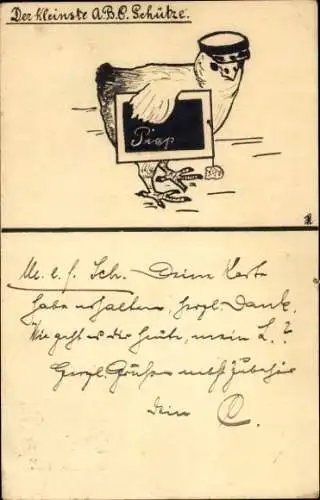 Der kleinste A.B.C. Schütze.
Piep
M. l. f. Sch. Deine Karte
habe erhalten, herzl. Dank.
Wie geht es dir heute, mein L.?
Herzl. Grüße nebst Zubehör
dein C.